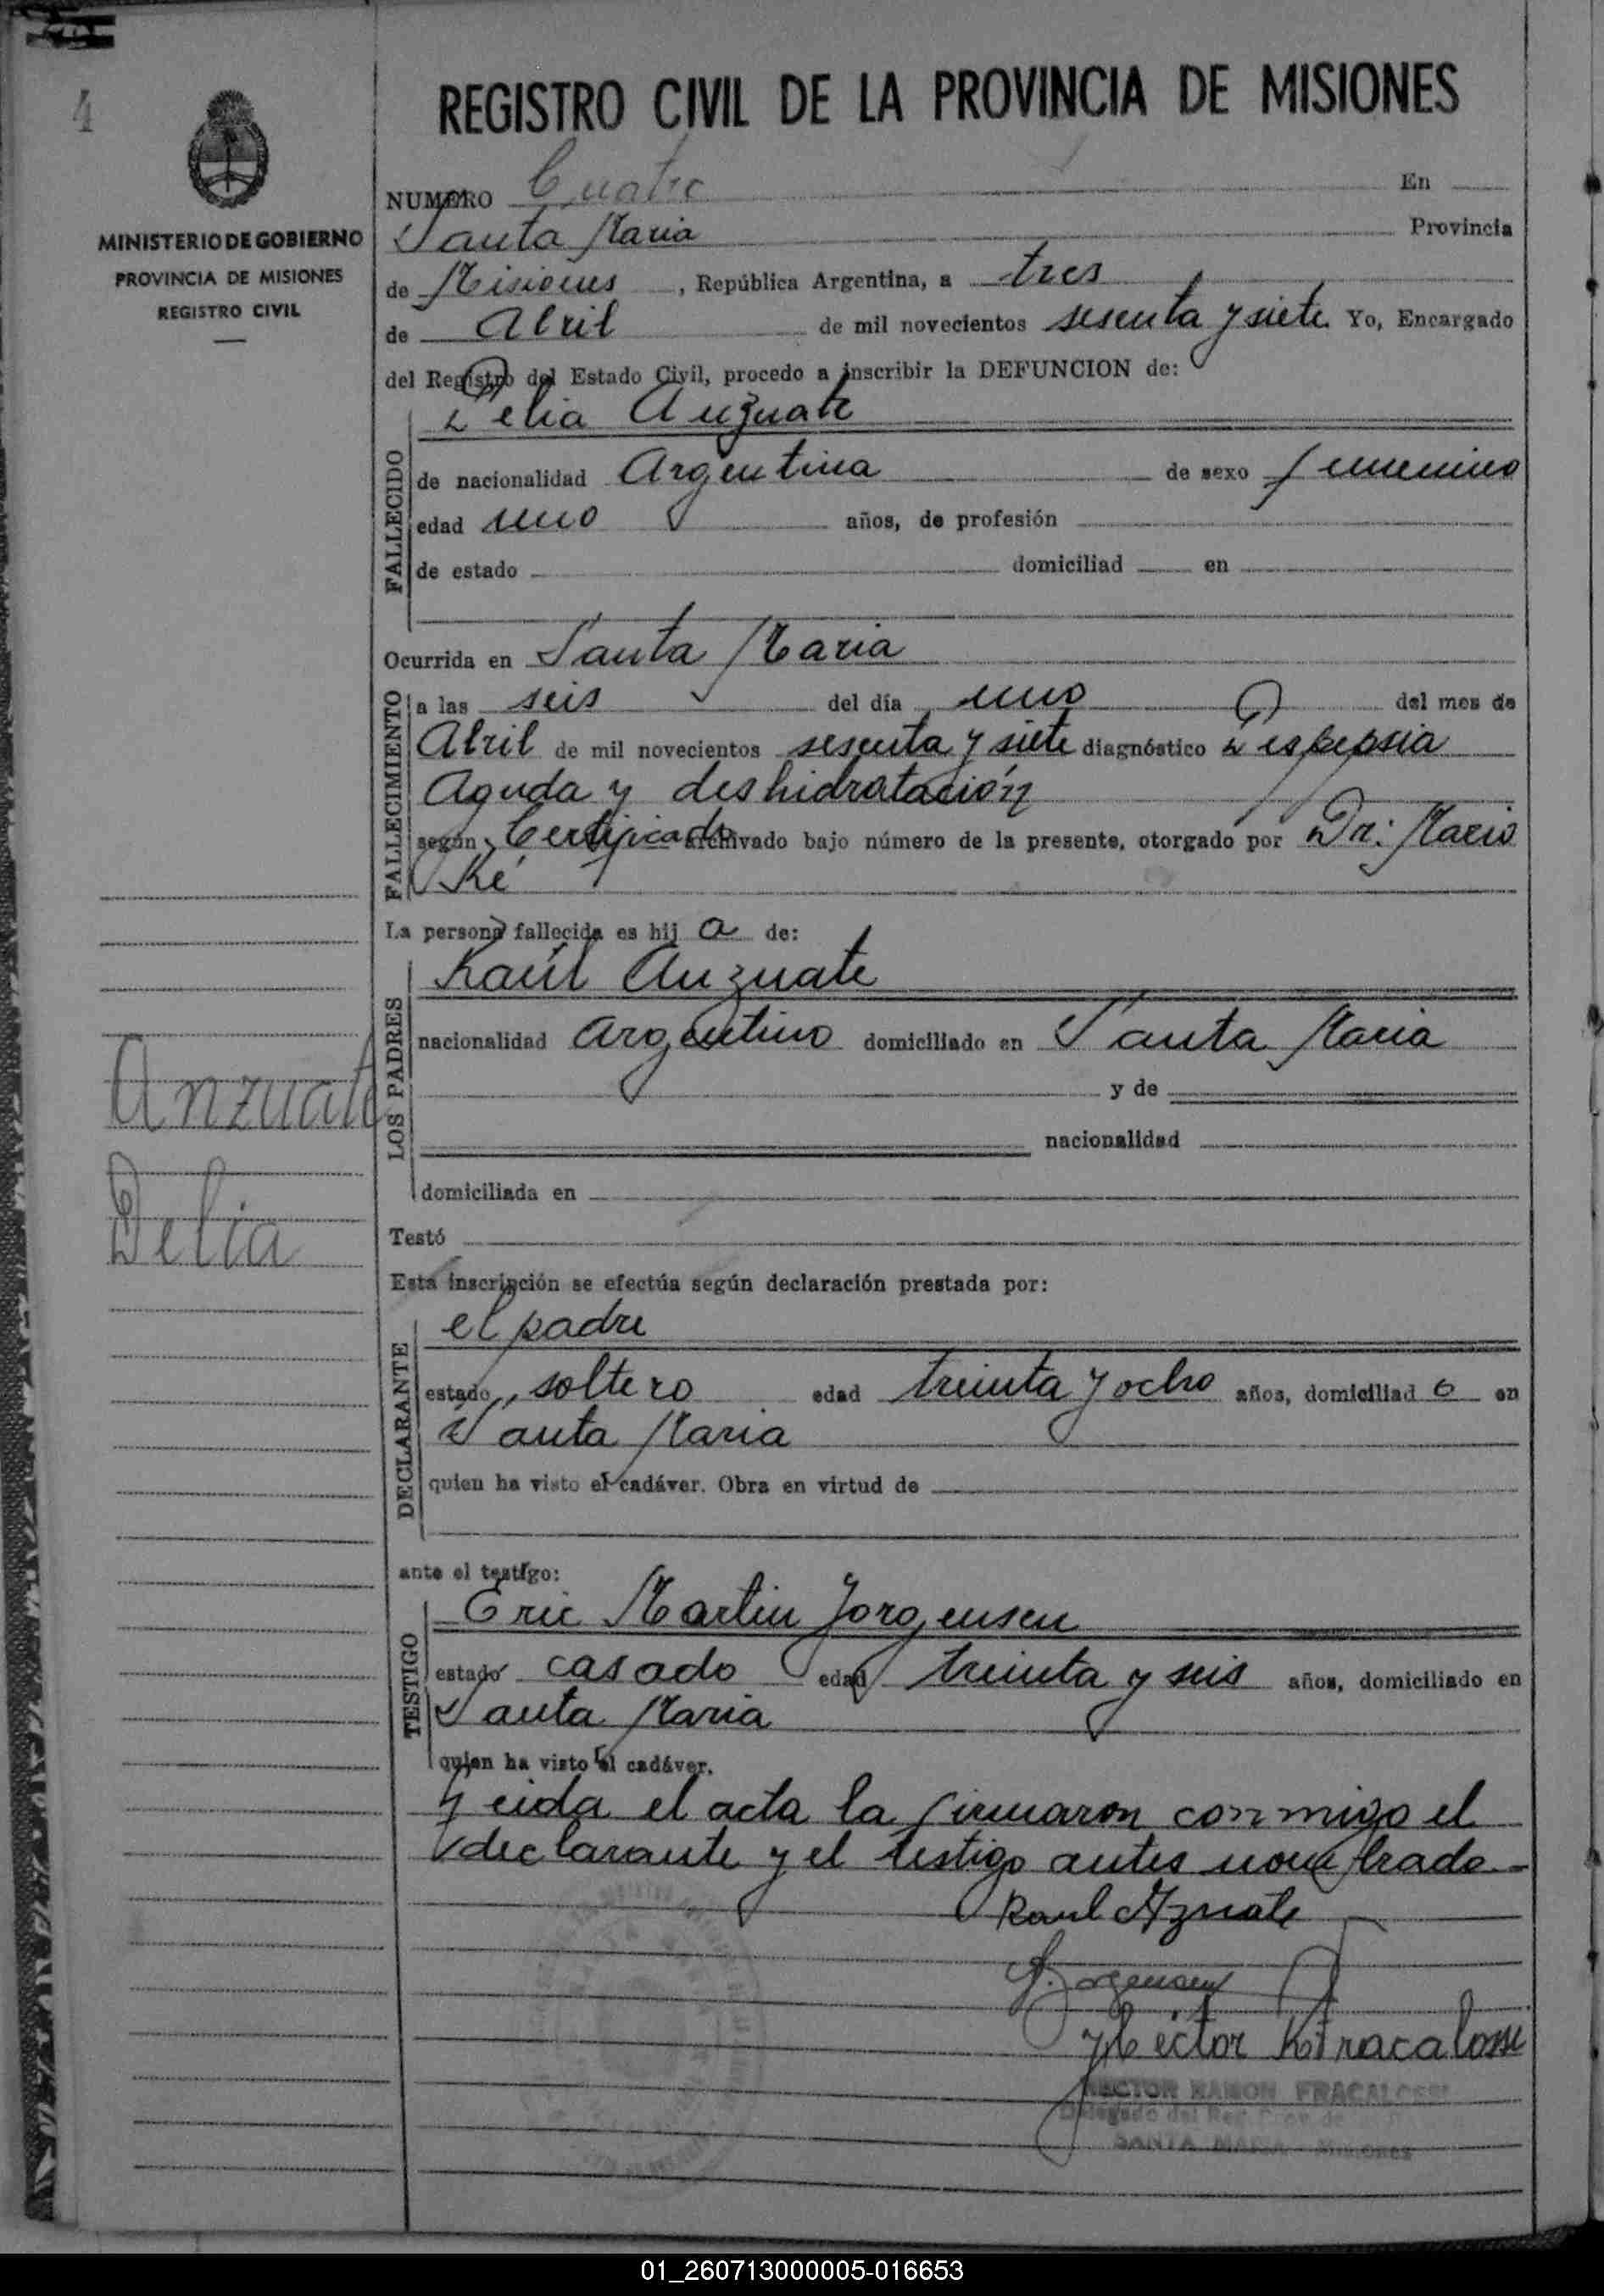 4
REGISTRO CIVIL DE LA PROVINCIA DE MISIONES
MINISTERIO DE GOBIERNO
PROVINCIA DE MISIONES
REGISTRO CIVIL
NUMERO Cuatro En
Santa Maria Provincia
de Misiones, República Argentina, a tres
de Abril de mil novecientos sesenta y siete Yo, Encargado
del Registro del Estado Civil, procedo a inscribir la DEFUNCION de:
Delia Anzuate
FALLECIDO
de nacionalidad Argentina de sexo femenino
edad uno años, de profesión
de estado domiciliad en
Ocurrida en Santa Maria
FALLECIMIENTO
a las seis del día uno del mes de
Abril de mil novecientos sesenta y siete diagnóstico Dispepsia
Aguda y deshidratación
según Certificado archivado bajo número de la presente, otorgado por Dr: Mario
Ré
La persona fallecida es hij a de:
LOS PADRES
Raúl Anzuate
nacionalidad Argentino domiciliado en Santa Maria
y de
nacionalidad
domiciliada en
Anzuate
Delia
Testó
Esta inscripción se efectúa según declaración prestada por:
DECLARANTE
el padre
estado soltero edad treinta y ocho años, domiciliad o en
Santa Maria
quien ha visto el cadáver. Obra en virtud de
ante el testigo:
TESTIGO
Eric Martin Jorgensen
estado casado edad treinta y seis años, domiciliado en
Santa Maria
quien ha visto el cadáver.
Leida el acta la firmaron conmigo el
declarante y el testigo antes nombrado
Raul Aznate
Jorgensen
Hector R Fracalossi
HECTOR RAMON FRACALOSSI
Delegado del Reg. Prov. de
SANTA MARIA - Misiones
01_260713000005-016653